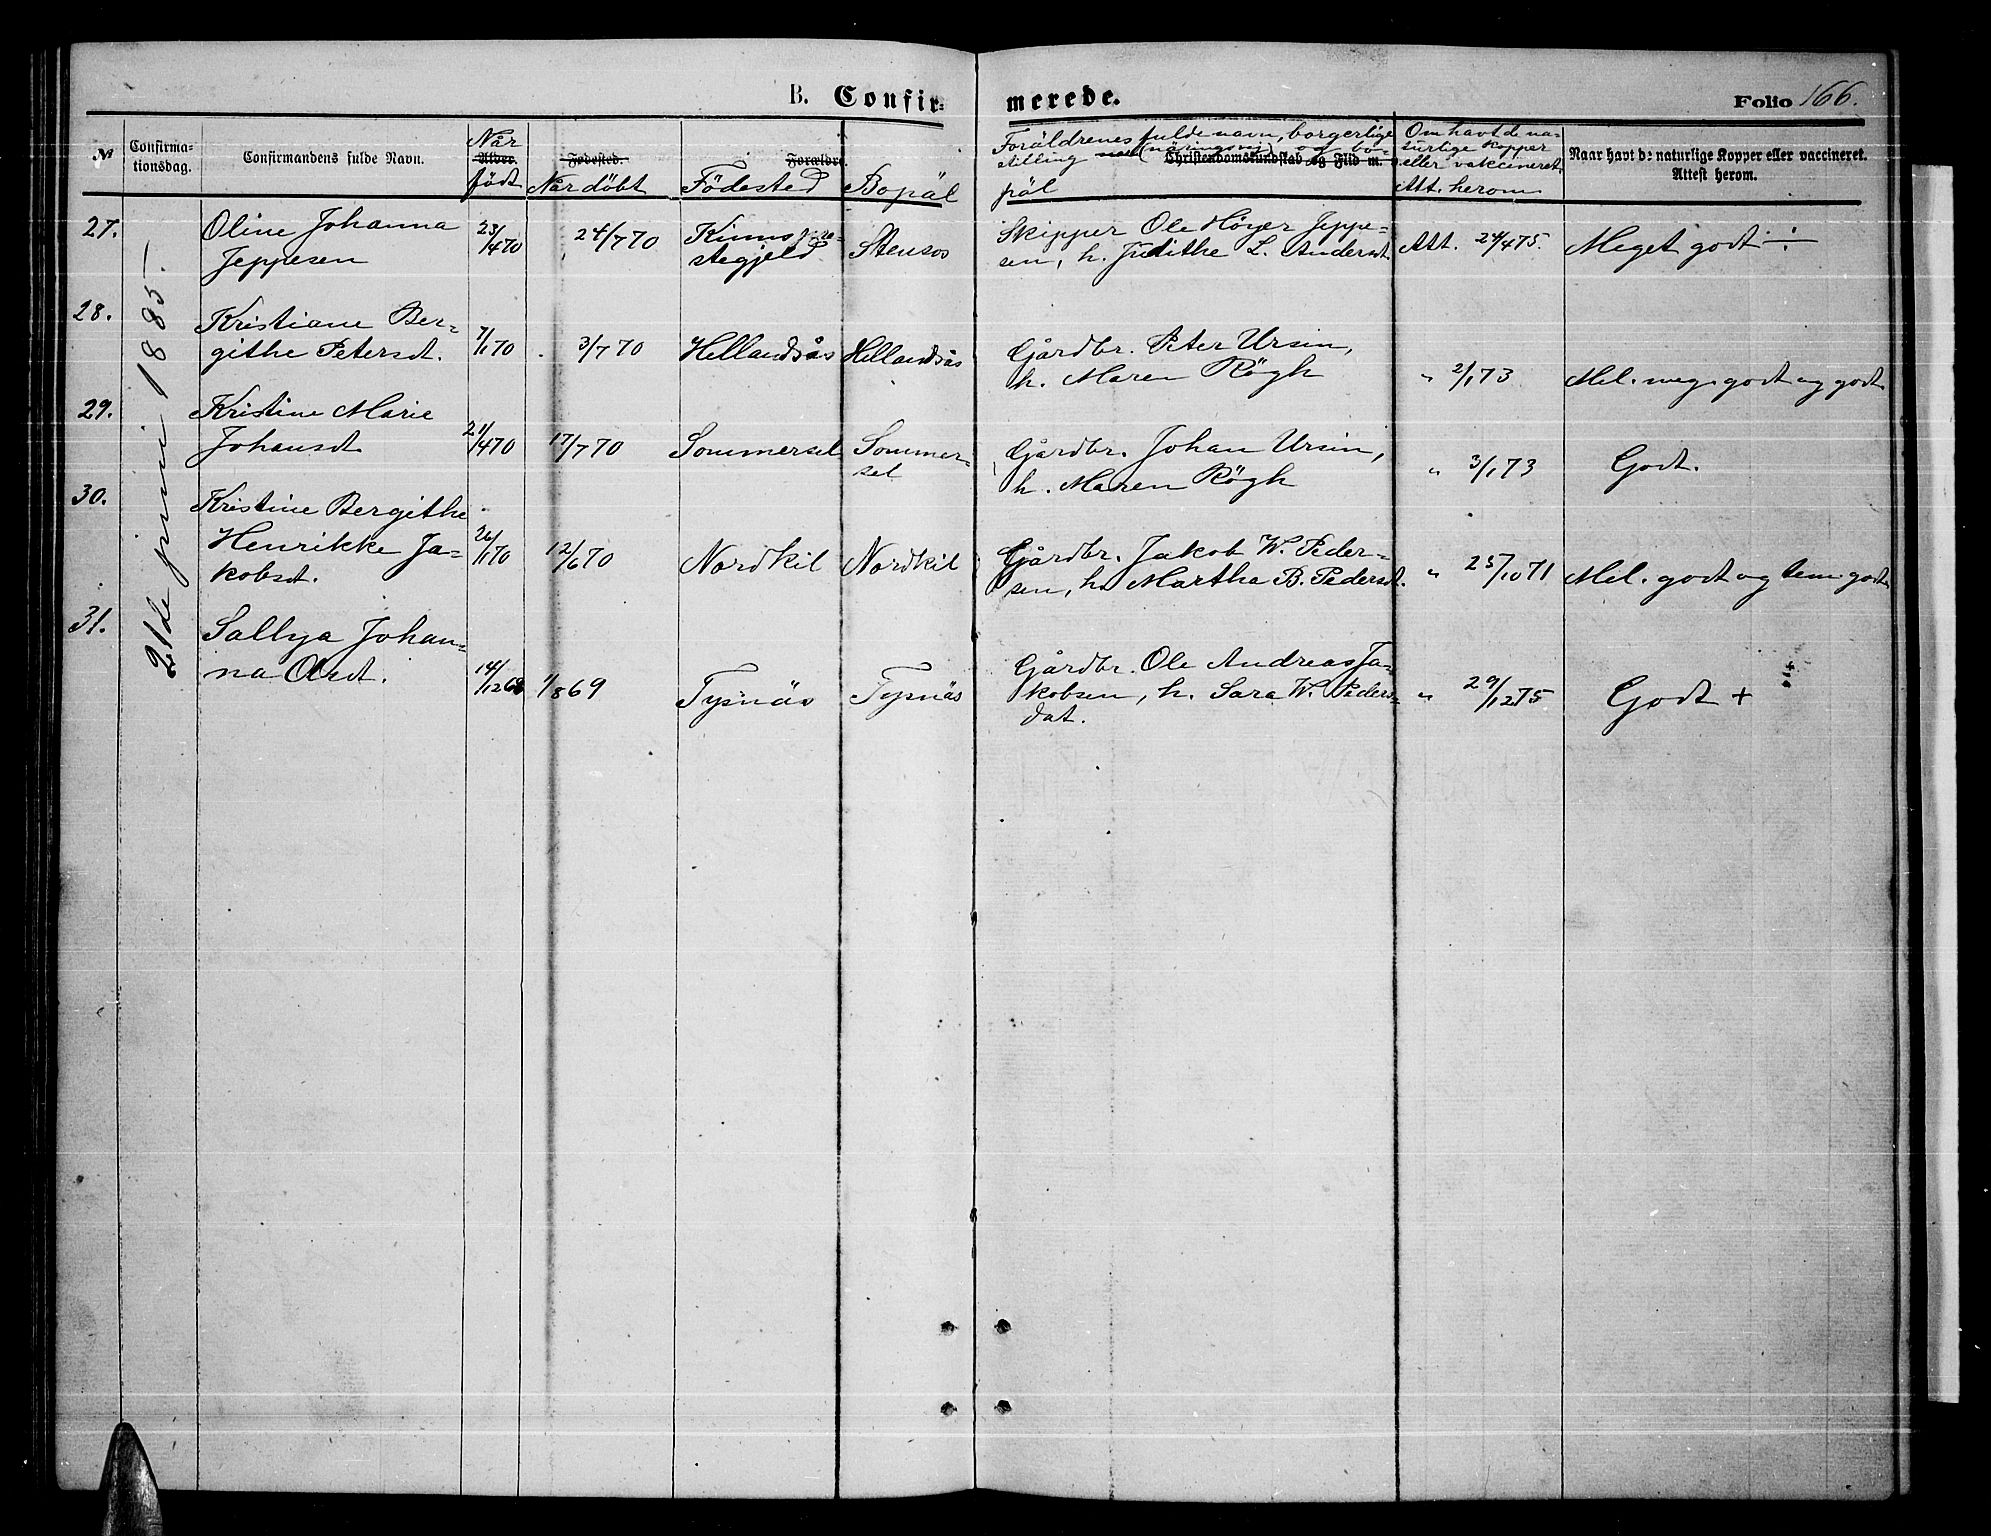 B. Confirmerede.
Folio 166.
№
Confirmationsdag.
Confirmandens fulde Navn.
Når
Alder.
født
Fødested.
Når döbt
Forældre
Födested
Bopäl
Foräldrenes fulde navn, borgerlige
stilling (näringsvej) og bo-
Christendomskundskab og Flid m.
päl
Om havt de na-
turlige kopper
eller vakcineret.
Att. herom
Naar havt de naturlige Kopper eller vaccineret.
Attest herom.
21de juni 1885.
27. Oline Johanna
Jeppesen 23/4 70 24/7 70 Kinns præ-
stegjeld Stensøs Skipper Ole Höyer Jeppe-
sen, h. Judithe L. Andersdt Att. 24/4 75. Meget godt ÷
28. Kristiane Ber-
githe Petersdt. 7/1 70 3/7 70 Hellandsås Hellandsås Gårdbr. Peter Ursin,
h. Maren Rögh " 2/1 73 Mel. meg. godt og godt
29. Kristine Marie
Johansdt 21/4 70 17/7 70 Sommersel Sommer-
sel Gårdbr. Johan Ursin,
h. Maren Rögh " 3/1 73 Godt.
30. Kristine Bergithe
Henrikke Ja-
kobsdt. 26/1 70 12/6 70 Nordkil Nordkil Gårdbr. Jakob W. Peder-
sen, h. Martha B. Pedersdt. " 25/10 71 Mel. godt og tem. godt
31. Sallya Johan-
na Olsdt. 14/12 68 1/8 69 Tysnäs Tysnäs Gårdbr. Ole Andreas Ja-
kobsen, h. Sara W. Peders-
dat. " 29/12 75 Godt +